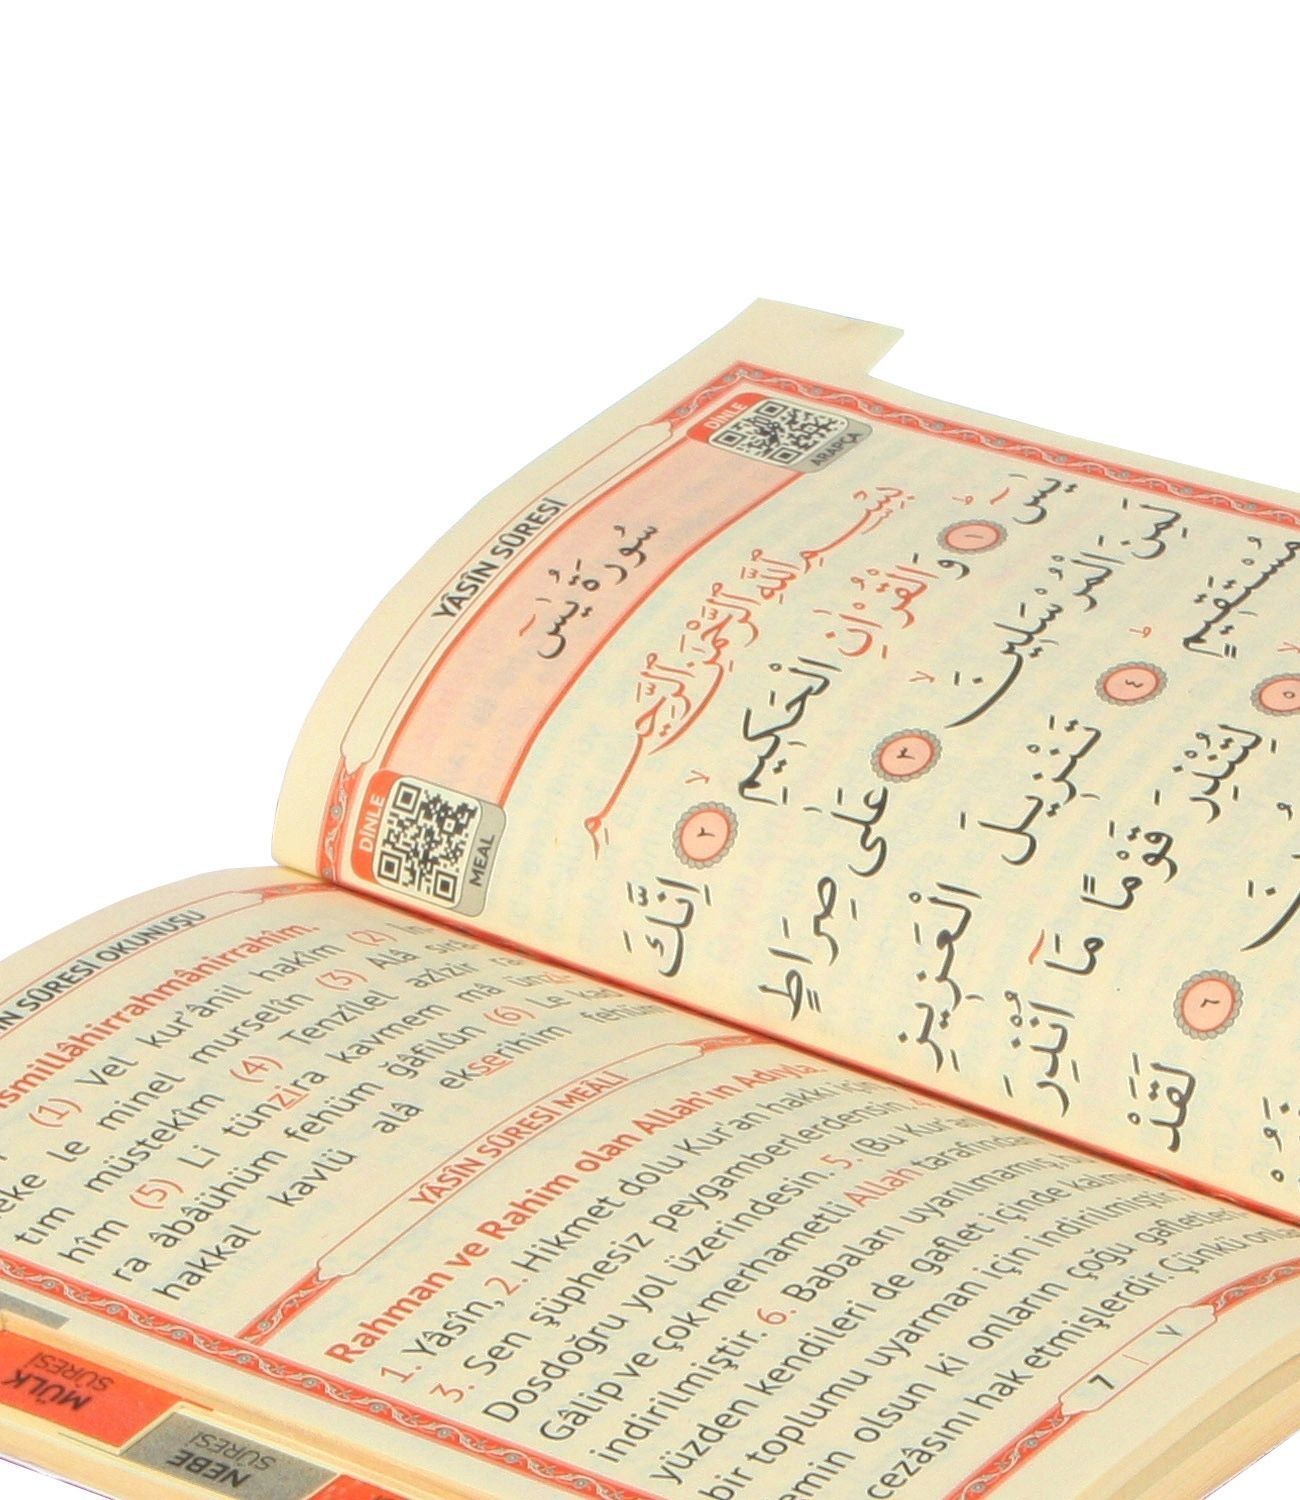 YÂSÎN SÛRESİ
DİNLE
ARAPÇA
سُورَةُ يٰسٓ
DİNLE
MEAL
بِسْمِ اللّٰهِ الرَّحْمٰنِ الرَّحِيمِ
يٰسٓ ۚ ﴿١﴾ وَالْقُرْاٰنِ الْحَكِيمِ ۙ ﴿٢﴾ اِنَّكَ
لَمِنَ الْمُرْسَلِينَ ۙ ﴿٣﴾ عَلٰى صِرَاطٍ
مُسْتَقِيمٍ ۜ ﴿٤﴾ تَنْزِيلَ الْعَزِيزِ
﴿٥﴾ لِتُنْذِرَ قَوْمًا مَٓا اُنْذِرَ
﴿٦﴾ لَقَدْ
SÛRESİ OKUNUŞU
(1) Vel kur'ânil hakîm (2)
le minel murselîn (3) Alâ
tım müstekîm (4) Tenzîlel azîzir
hîm (5) Li tünzira kavmem mâ
ra âbâühüm fehüm ğâfilûn (6) Le
hakkal kavlü alâ ekserihim fehüm
YÂSÎN SÛRESİ MEÂLİ
Rahman ve Rahim olan Allah'ın Adıyla.
1. Yâsîn, 2. Hikmet dolu Kur'an hakkı için
3. Sen şüphesiz peygamberlerdensin.
Dosdoğru yol üzerindesin. 5. (Bu Kur'an
Gâlip ve çok merhametli Allah tarafından
indirilmiştir. 6. Babaları uyarılmamış,
yüzden kendileri de gaflet içinde
bir toplumu uyarman için indirilmiştir.
emin olsun ki onların çoğu
cezâsını hak etmişlerdir. Çünkü
7 | ٧
MÜLK
SÛRESİ
NEBE
SÛRESİ